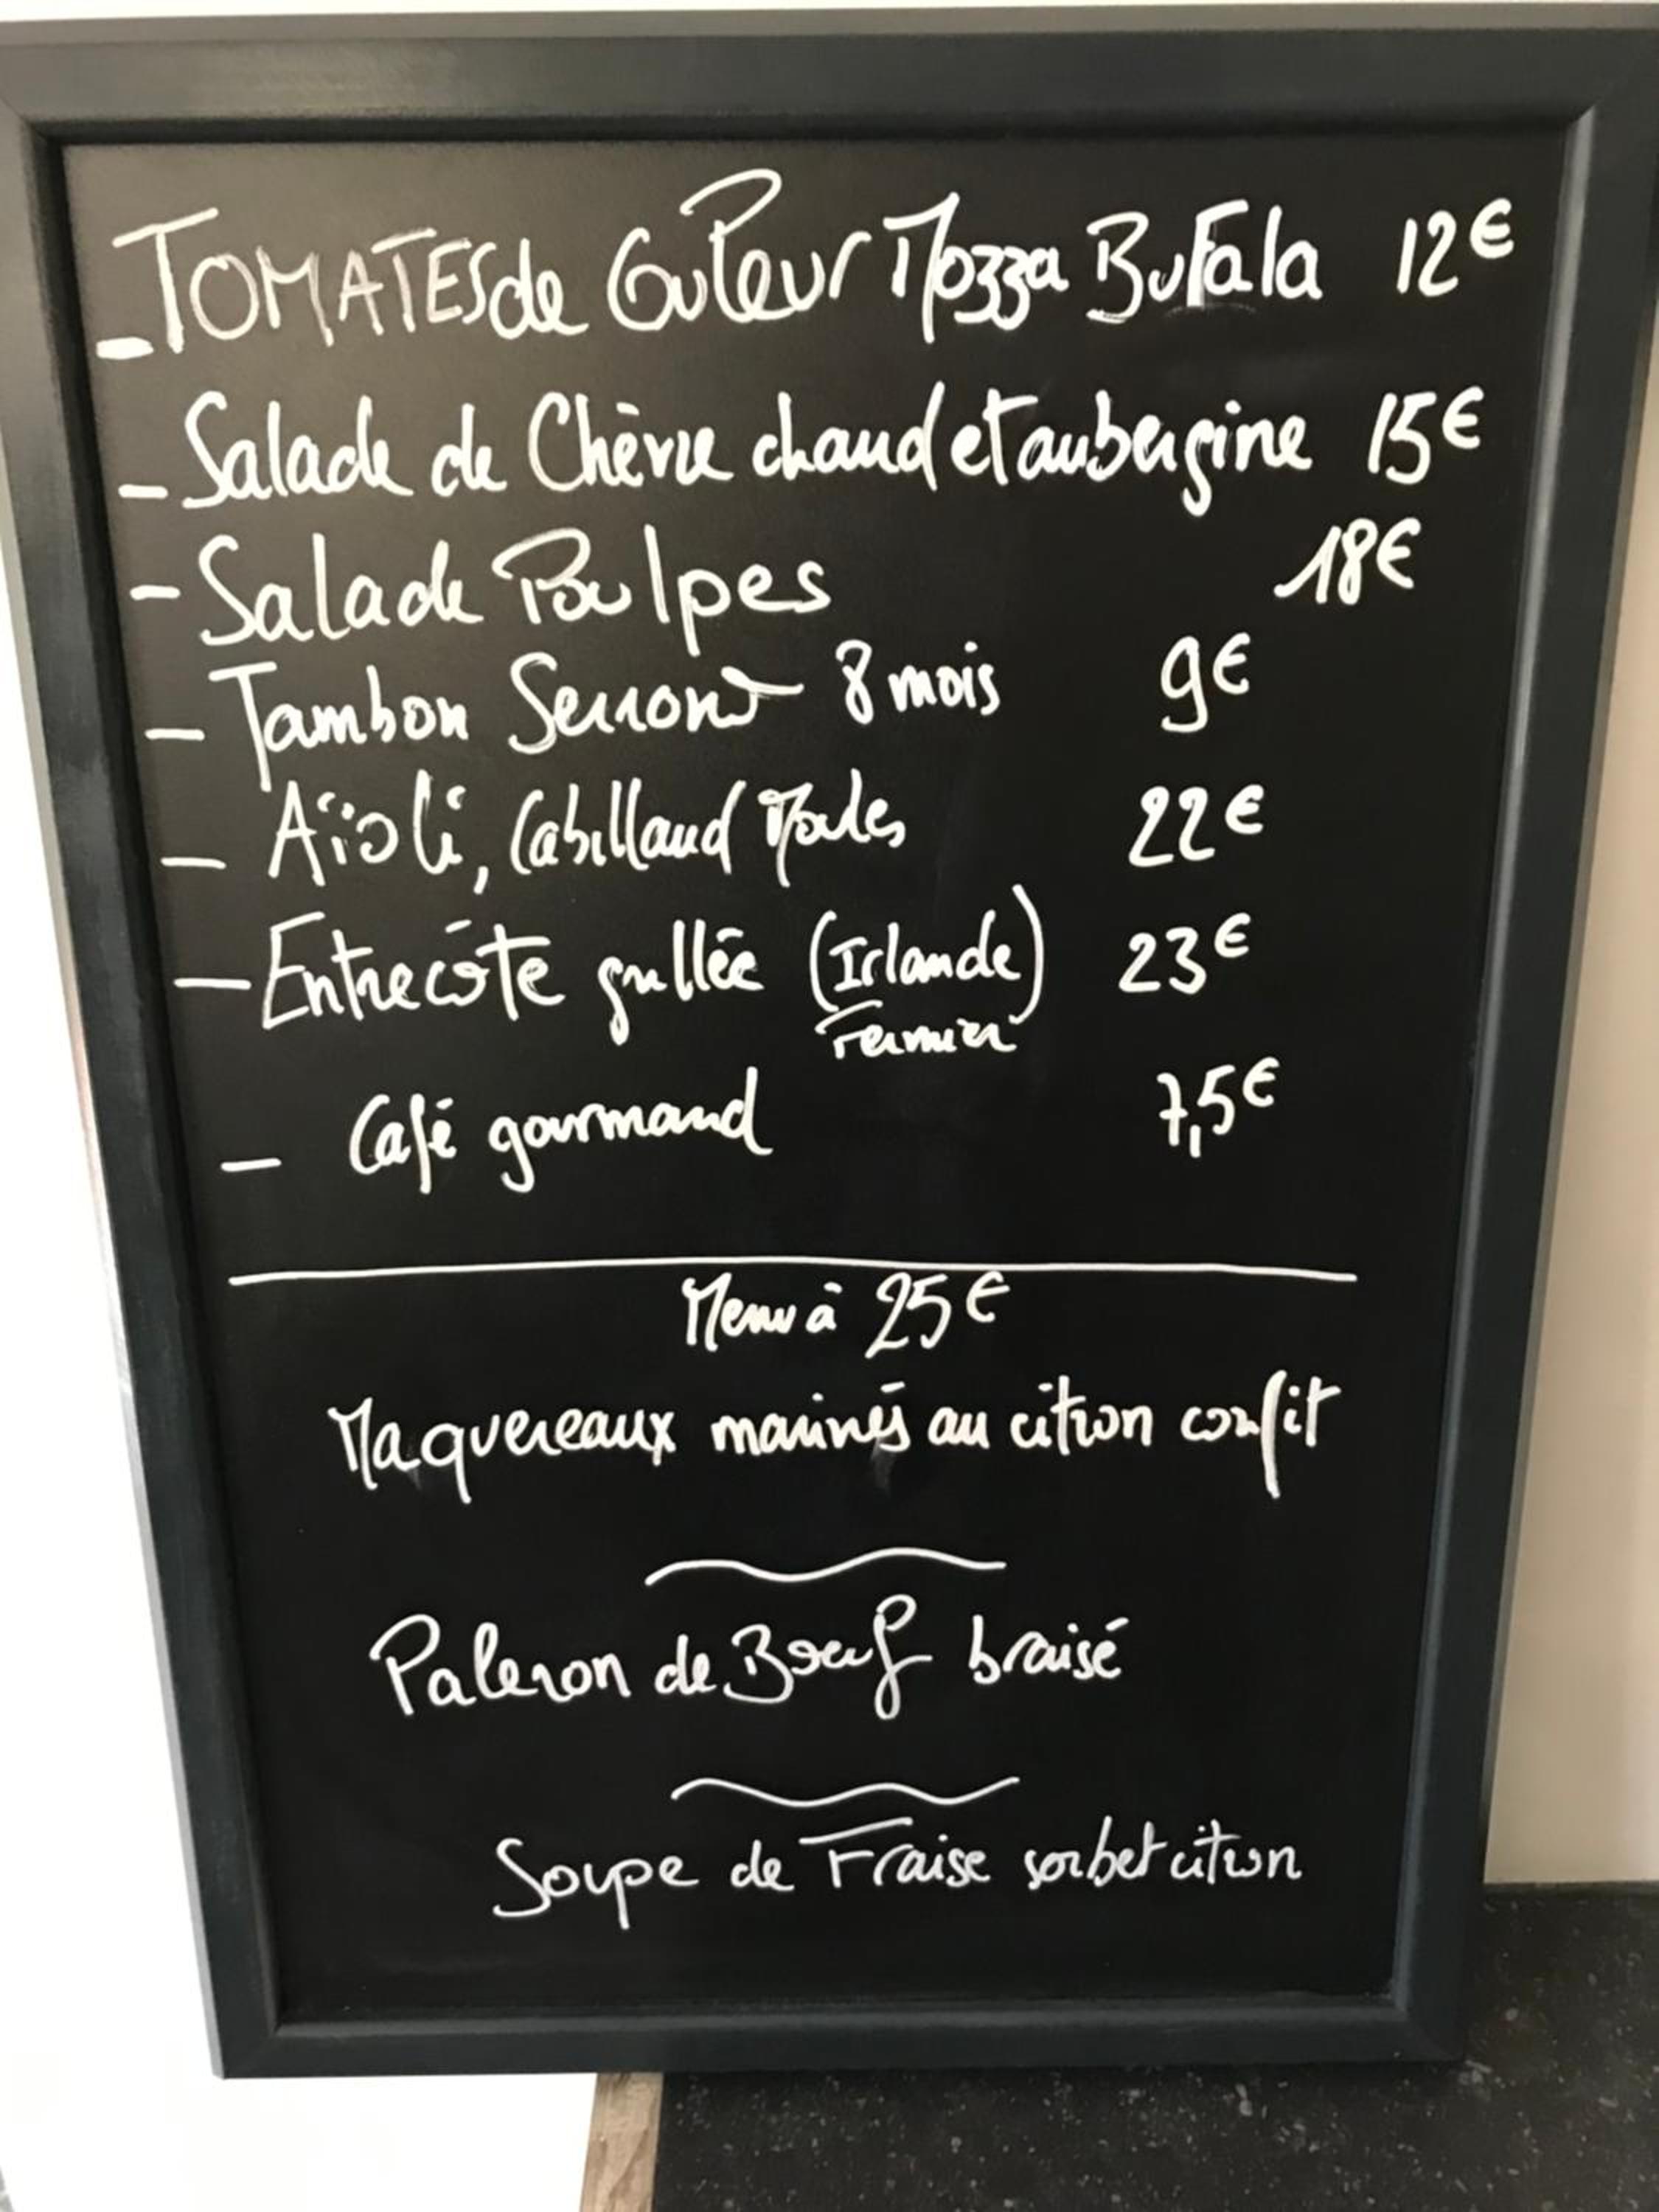 - TOMATES de Couleur Mozza Bufala 12€
- Salade de Chèvre chaud et aubergine 15€
- Salade Poulpes 18€
- Jambon Serrano 8 mois 9€
- Aïoli, Cabillaud Moules 22€
- Entrecôte grillée (Irlande) 23€
Fermier
- Café gourmand 7,5€
Menu à 25€
Maquereaux marinés au citron confit
Paleron de Boeuf braisé
Soupe de Fraise sorbet citron